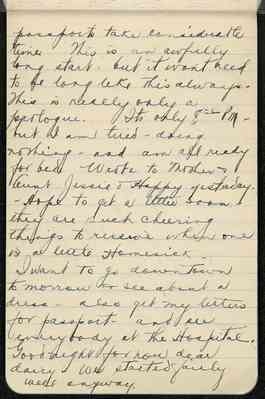 passports take considerable
time. This is an awfully
long start - but it wont need
to be long like this always.
This is really only a
prologue. Its only 8 PM -
but I am tired - doing
nothing - and am all ready
for bed - Wrote to Mother,
Aunt Jessie & Happy yesterday.
- Hope to get a letter soon -
they are such cheering
things to receive when one
is a little Homesick -
I want to go downtown
tomorrow to see about a
dress - also get my letters
for passport - and see
everybody at the Hospital.
Good night for now dear
diary We started fairly
well anyway.